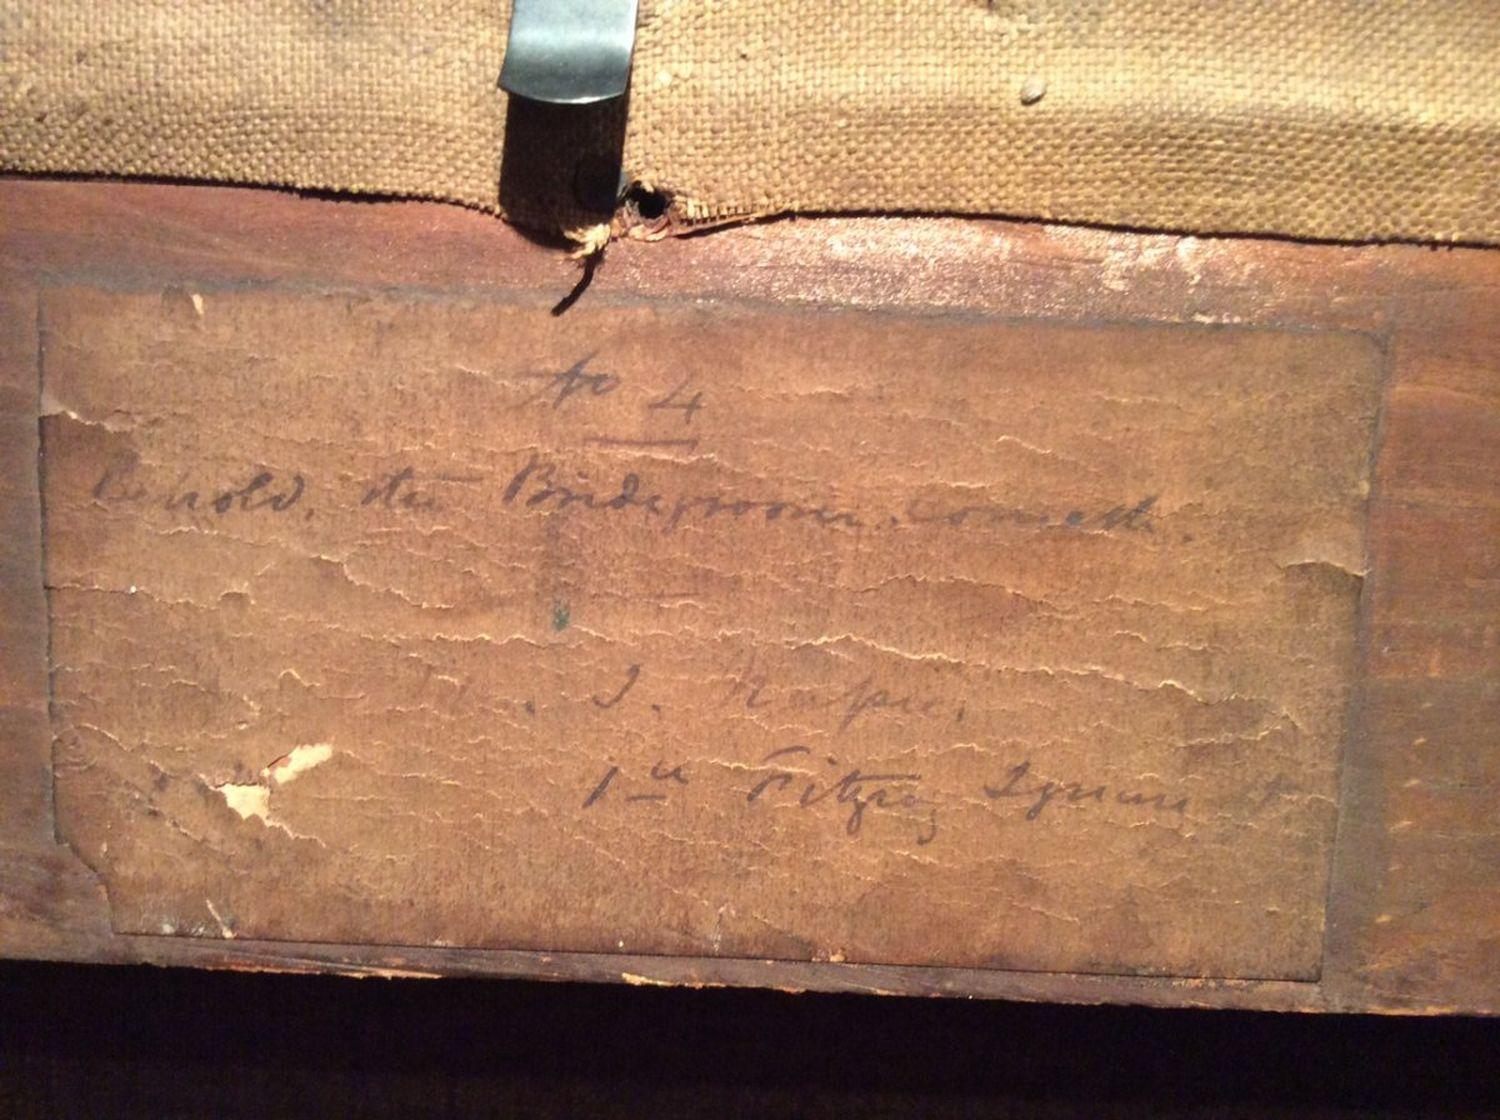 No 4
Behold, the Bridegroom, cometh.
J. Napier,
1a Fitzroy Square